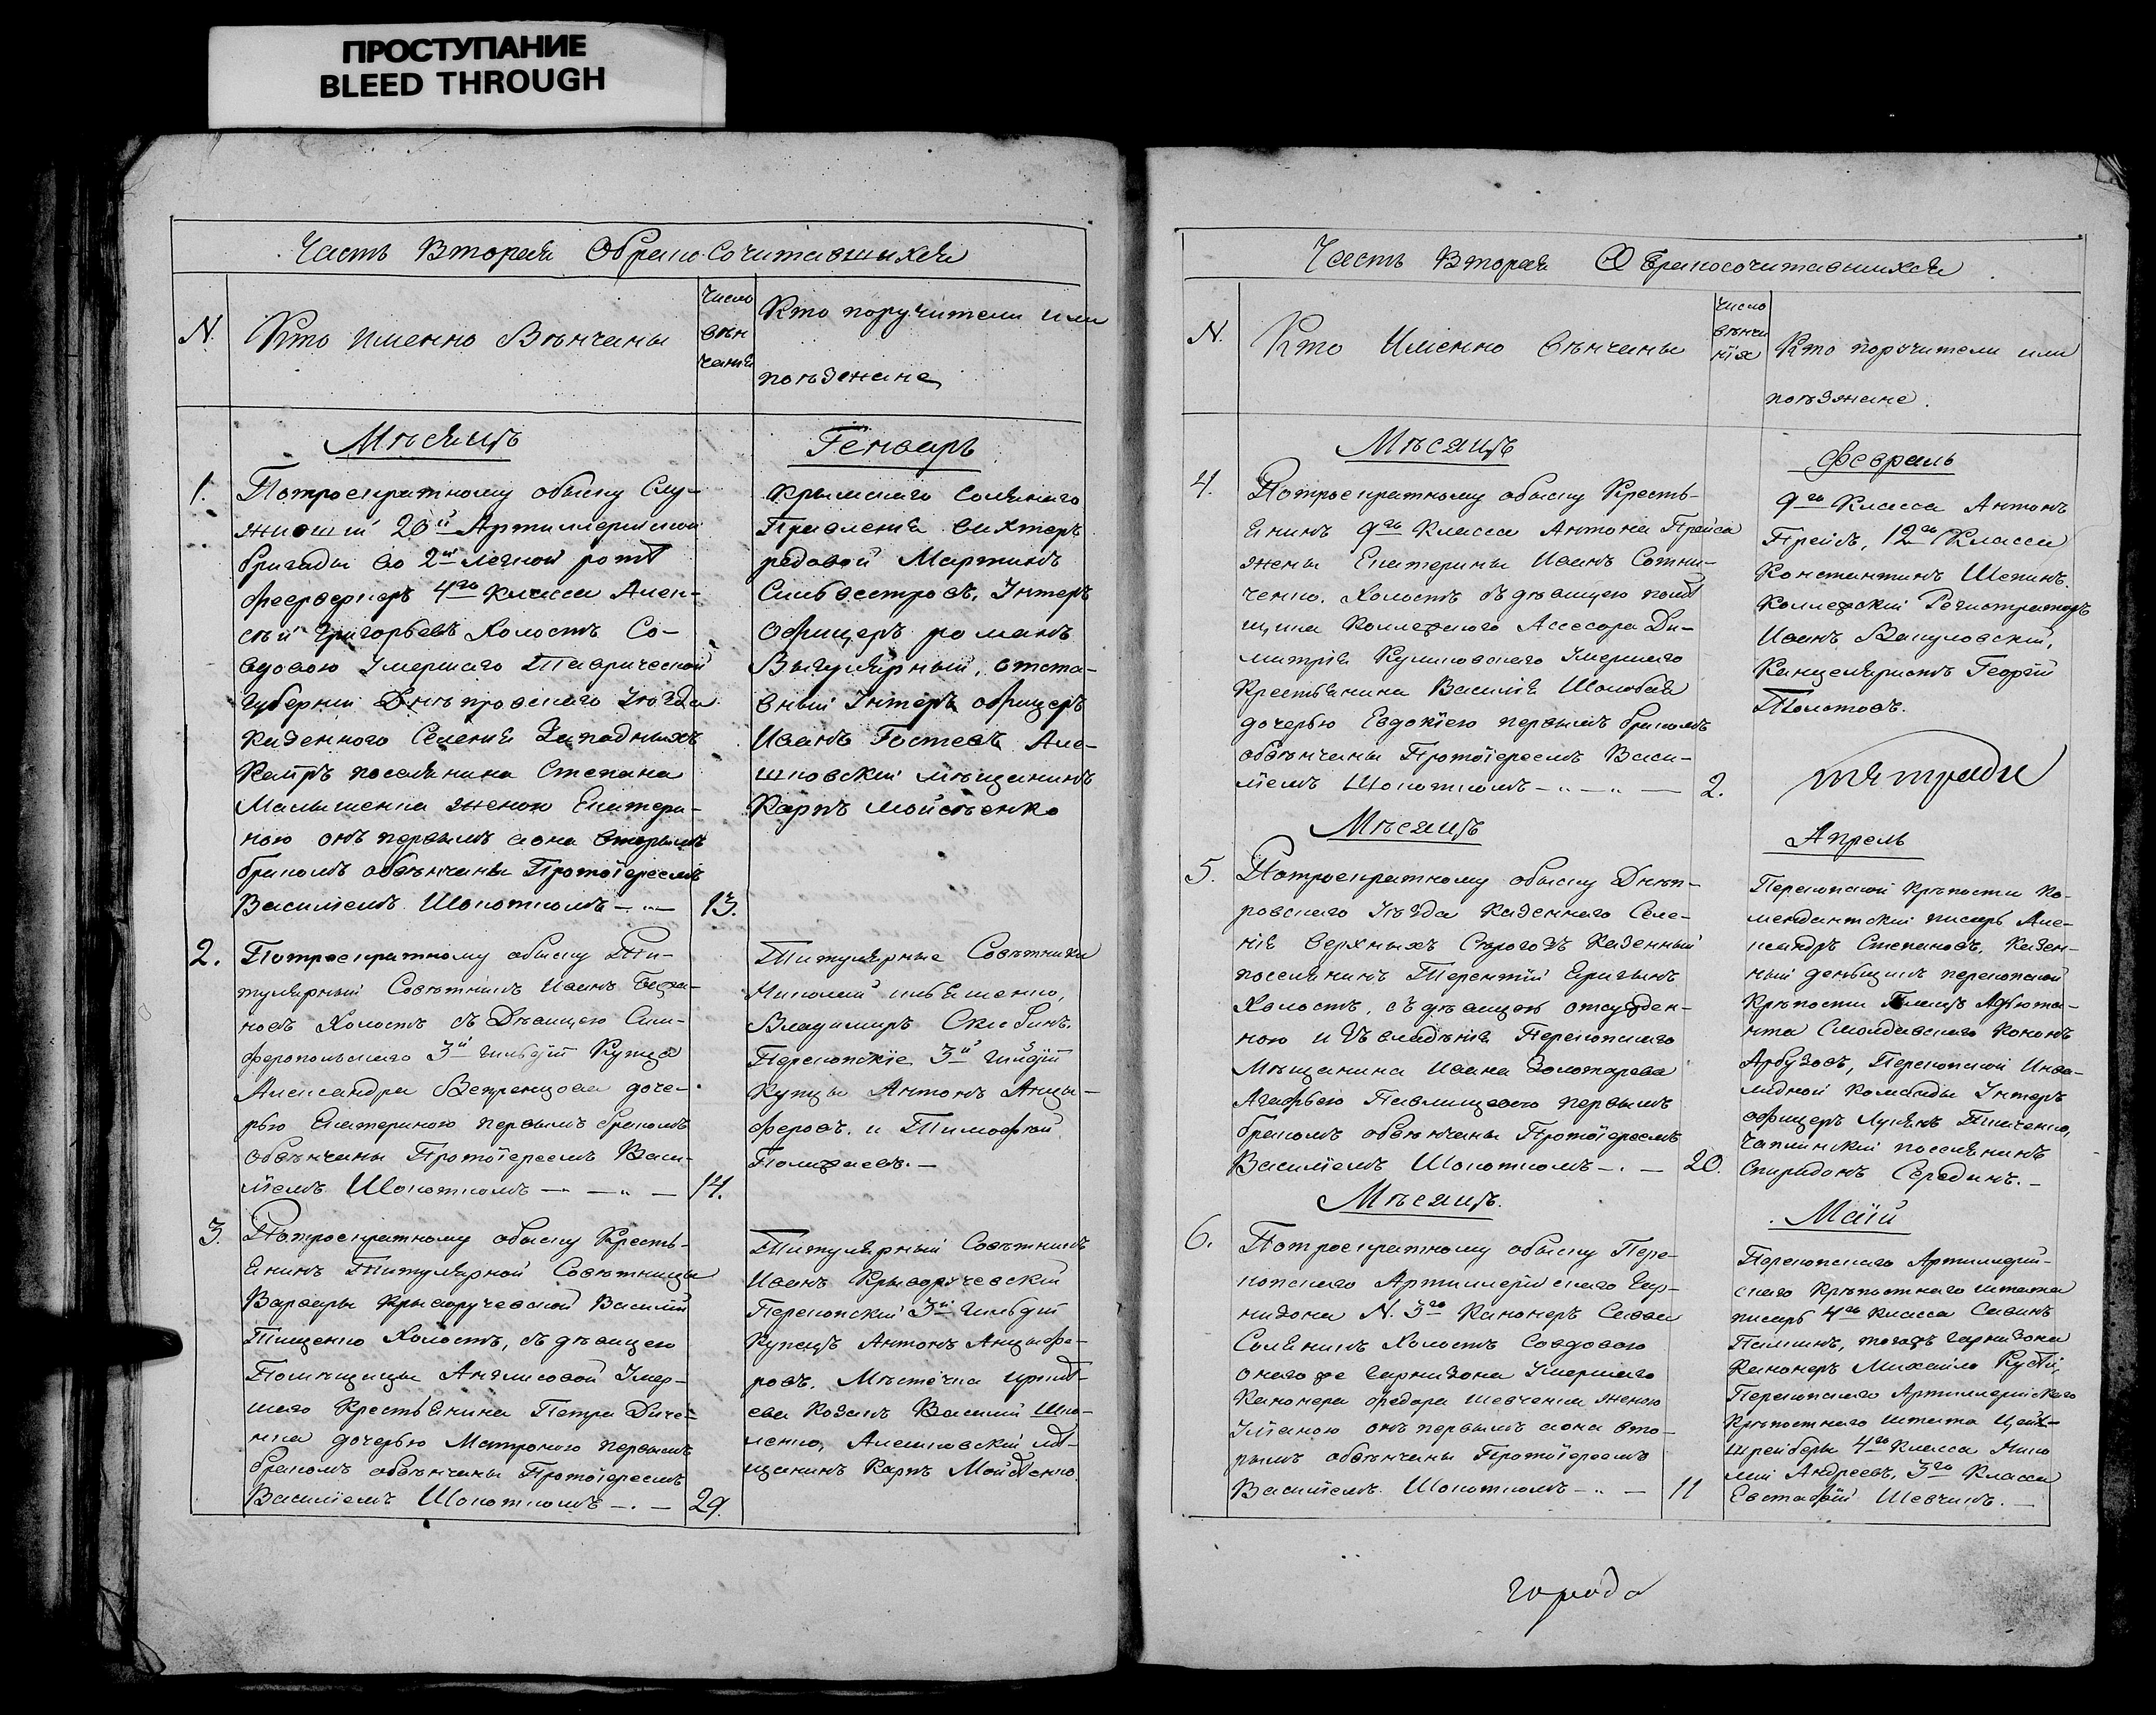 ПРОСТУПАНИЕ
BLEED THROUGH
Часть Вторая Обрако Сочитавшихся
N.
Кто именно Вѣнчаны
Число
вѣн
чанія
Кто поручители или
поѣзжане
Мѣсяцъ
Генварь
1.
Потроекратному обыску Слу-
жившій 20й Артиллерійской
бригады во 2й легкой ротѣ
феерверкеръ 4го класса Алек-
сѣй Григорьевъ Холостъ Со-
вдовою Умершаго Таврической
губерніи Днѣпровскаго Уѣзда
Казенного Селенія Западныхъ
Каиръ поселянина Степана
Малышенка женою Екатери-
ною онъ первымъ аона вторымъ
бракомъ обвѣнчаны Протоіереемъ
Василіемъ Шокоткомъ
13.
Крымскаго Солянаго
Правленія вахтеръ
редовой Мартинъ
Сильвестровъ, Унтеръ
Офицеръ романъ
Вигулярный, отста-
вный Унтеръ офицеръ
Иванъ Гостевъ Але-
шковскій мѣщанинъ
Карпъ Мойсѣенко
2.
Потроекратному обыску Ти-
тулярный Совѣтникъ Иванъ
Холостъ съ Дѣвицею Сим-
феропольскаго 3й гильдіи Купца
Александра Вепренцова доче-
рью Екатериною первымъ бракомъ
Обвѣнчаны Протоіереемъ Васи-
ліемъ Шокоткомъ
14.
Титулярные Совѣтники
Николай ильяшенко,
Владимиръ Скибинъ.
Перекопскіе 3й гилдіи
Купцы Антонъ Анцы-
феровъ. и Тимофѣй
Полежаевъ.
3.
Потроекратному обыску Кресть-
янинъ Титулярной Совѣтницы
Варвары Криворучевской Василій
Тищенко Холостъ, съ дѣвицею
Помѣщицы Умер-
шего Крестьянина Петра Дичен-
нка дочерью Матроною первымъ
бракомъ обвѣнчаны Протоіереемъ
Василіемъ Шокоткомъ
29.
Титулярный Совѣтникъ
Иванъ Криворучевскій
Перекопскій 3й гильдіи
Купецъ Антонъ Анцыфе-
ровъ. Мѣстечка
Козакъ Василій Шко-
ленко, Алешковскій мѣ-
щанинъ Карпъ Мойсѣенко.
Часть Вторая О бракосочитавшихся
N.
Кто Именно вѣнчаны
Число
вѣнча
нія
Кто поручители или
поѣзжане.
Мѣсяцъ
Февраль
4.
Потроекратному обыску Кресть-
янинъ 9го Класса Антона Прейса
жены Екатерины Иванъ Сотни-
ченко. Холостъ съ дѣвицею помѣ
щика Коллежского Ассесора Ди-
митрія Куликовскаго Умершаго
Крестьянина Василія Шолобая
дочерью Евдокіею первымъ бракомъ
обвѣнчаны Протоіереемъ Васи-
ліемъ Шокоткомъ
2.
9го Класса Антонъ
Прейсъ, 12го Класса
Константинъ Шепинъ.
Коллежскій Регистраторъ
Иванъ Вакуловскій,
Канцеляристъ Георгій
Толстовъ.
тетради
Мѣсяцъ
Апрель
5.
Потроекратному обыску Днѣп-
ровскаго Уѣзда Казеннаго Селе-
нія верхныхъ Сѣрогозъ Казенный
поселянинъ Терентій Еригинъ
Холостъ, съ дѣвицею отсужден-
ною изъ владѣнія Перекопскаго
Мѣщанина Ивана Золотарева
Агафьею Павлищевою первымъ
бракомъ обвѣнчаны Протоіереемъ
Василіемъ Шокоткомъ
20.
Перекопской Крѣпости ко-
мендантскій писарь Але-
ксандръ Степановъ, Казен-
ный денщикъ перекопской
Крѣпости Плацъ Адъюта-
нта Смолдавскаго Кононъ
Арбузовъ, Перекопской Инва-
лидной Команды Унтеръ
офицеръ Лукянъ Ткаченко,
Чаплинскій поселянинъ
Спиридонъ Серединъ.
Мѣсяцъ.
Маій
6.
Потроекратному обыску Пере-
копскаго Артиллерійскаго Гар-
низона N. 3го Канонеръ Савва
Соляникъ Холостъ Совдовою
оного же Гарнизона Умершаго
Канонера федора Шевченка женою
Уліаною онъ первымъ аона вто-
рымъ обвѣнчаны Протоіереемъ
Василіемъ Шокоткомъ
11
Перекопскаго Артиллерій-
скаго Крѣпостного штата
писарь 4го класса Савинъ
Палкинъ, тогожъ гарнизона
Канонеръ Михайло Кустѣй,
Перекопскаго Артиллерійскаго
Крѣпостнаго штата Цейх-
шрейберы 4го класса Нико
лай Андреевъ, 3го Класса
Евстафій Шевчикъ.
города